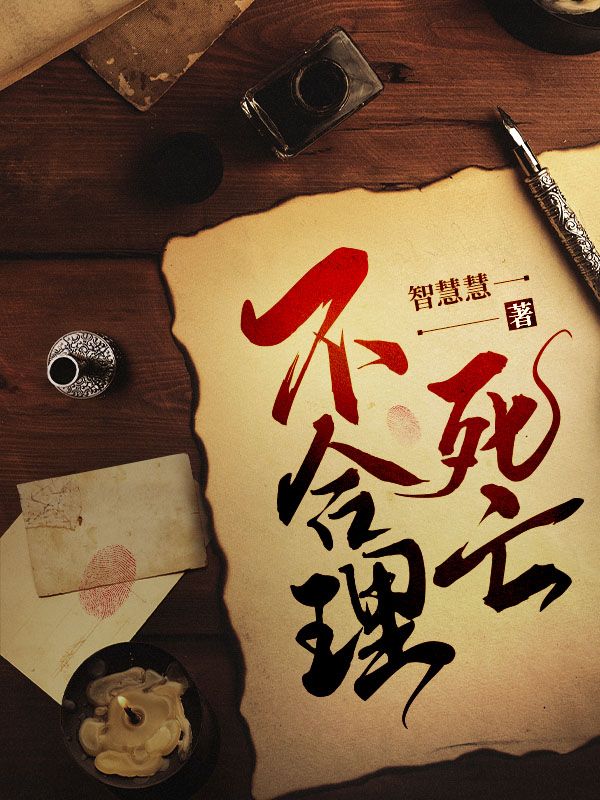 不合理
死亡
智慧慧
著